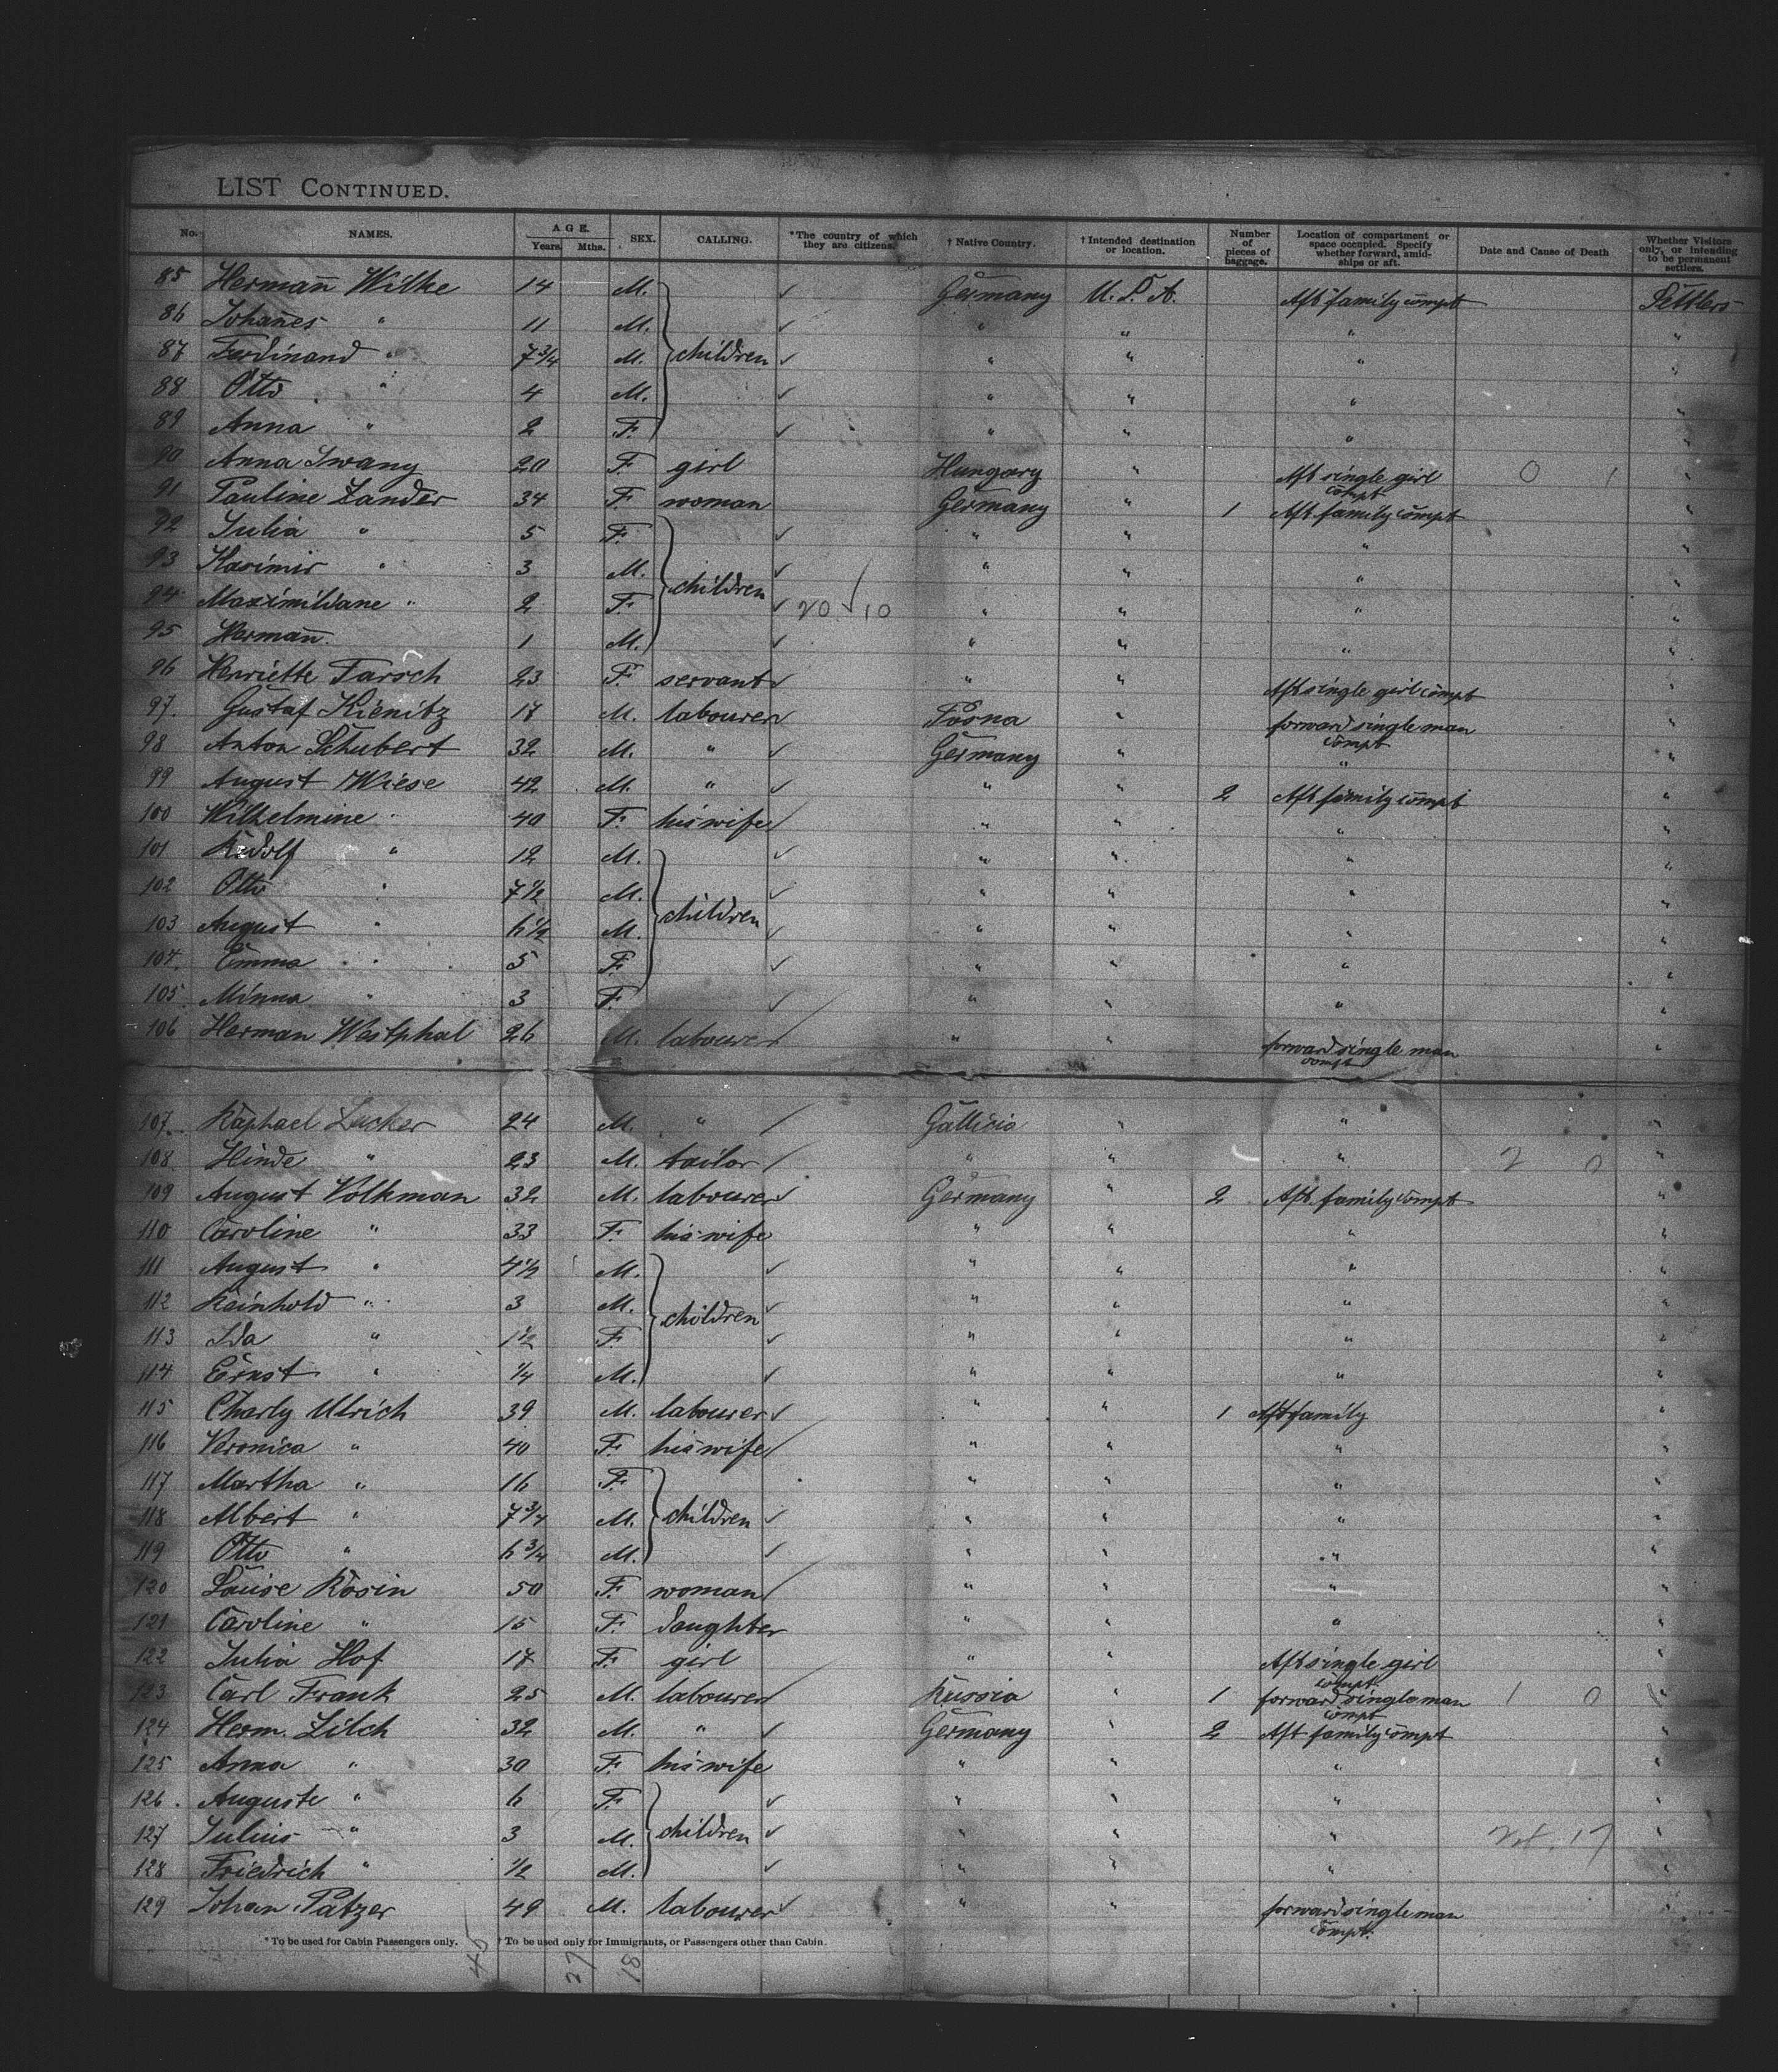 LIST CONTINUED.
No. NAMES. AGE. Years. Mths. SEX. CALLING. *The country of which they are citizens. † Native Country. † Intended destination or location. Number of pieces of baggage. Location of compartment or space occupied. Specify whether forward, amidships or aft. Date and Cause of Death Whether Visitors only, or intending to be permanent settlers.
85 Hermañ Wilke 14 M. ✓ Germany U.S.A. Aft family compt Settlers
86 Johañes " 11 M. ✓ " " " "
87 Ferdinand " 7 3/4 M. children ✓ " " " "
88 Otto " 4 M. ✓ " " " "
89 Anna " 2 F. ✓ " " " "
90 Anna Swany 20 F. girl Hungary " Aft single girl compt 0 1 "
91 Pauline Zander 34 F. woman Germany " 1 Aft family compt "
92 Julia " 5 F. ✓ " " " "
93 Kasimir " 3 M. children ✓ " " " "
94 Maximiliane " 2 F. ✓ 20 ✓ 10 " " " "
95 Hermañ 1 M. ✓ " " " "
96 Henriette Farsch 23 F. servant ✓ " " Aft single girl compt "
97. Gustaf Kienitz 17 M. labourer ✓ Posna " forward single man compt "
98 Anton Schubert 32 M. " ✓ Germany " " "
99 August Wiese 42 M. " ✓ " " 2 Aft family compt "
100 Wilhelmine " 40 F. his wife ✓ " " " "
101 Rudolf " 12 M. ✓ " " " "
102 Otto " 7 1/2 M. ✓ " " " "
103 August " 6 1/2 M. children ✓ " " " "
104. Emma " 5 F. ✓ " " " "
105. Minna " 3 F. ✓ " " " "
106 Herman Westphal 26 M. labourer " " forward single man compt "
107. Raphael Lucker 24 M. " Gallizia " " "
108 Hinde " 23 M. tailor " " " 2 0 "
109 August Volkman 32 M. labourer ✓ Germany " 2 Aft family compt "
110 Caroline " 33 F. his wife " " " "
111 August " 4 1/2 M. ✓ " " " "
112 Reinhold " 3 M. children ✓ " " " "
113 Ida " 1 1/2 F. ✓ " " " "
114 Ernst " 1/4 M. ✓ " " " "
115 Charly Ulrich 39 M. labourer ✓ " " 1 Aft family "
116 Veronica " 40 F. his wife " " " "
117 Martha " 16 F. " " " "
118 Albert " 7 3/4 M. children ✓ " " " "
119 Otto " 6 3/4 M. ✓ " " " "
120 Louise Rosin 50 F. woman " " " "
121 Caroline " 15 F. daughter " " " "
122 Julia Hof 17 F. girl " " Aft single girl compt. "
123 Carl Frank 25 M. labourer Russia " 1 forward single man compt 1 0 "
124 Herm. Zilch 32 M. " ✓ Germany " 2 Aft family compt "
125 Anna " 30 F. his wife " " " "
126. Auguste " 6 F. ✓ " " " "
127 Julius " 3 M. children ✓ " " " "
128 Friedrich " 1/2 M. ✓ " " " "
129 Johan Patzer 49 M. labourer ✓ " " forward single man compt. "
*To be used for Cabin Passengers only. † To be used only for Immigrants, or Passengers other than Cabin.
45 27 18